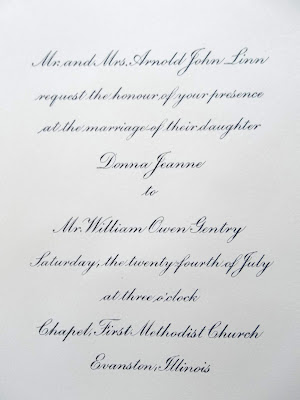 Mr. and Mrs. Arnold John Linn
request the honour of your presence
at the marriage of their daughter
Donna Jeanne
to
Mr. William Owen Gentry
Saturday, the twenty-fourth of July
at three o'clock
Chapel, First Methodist Church
Evanston, Illinois